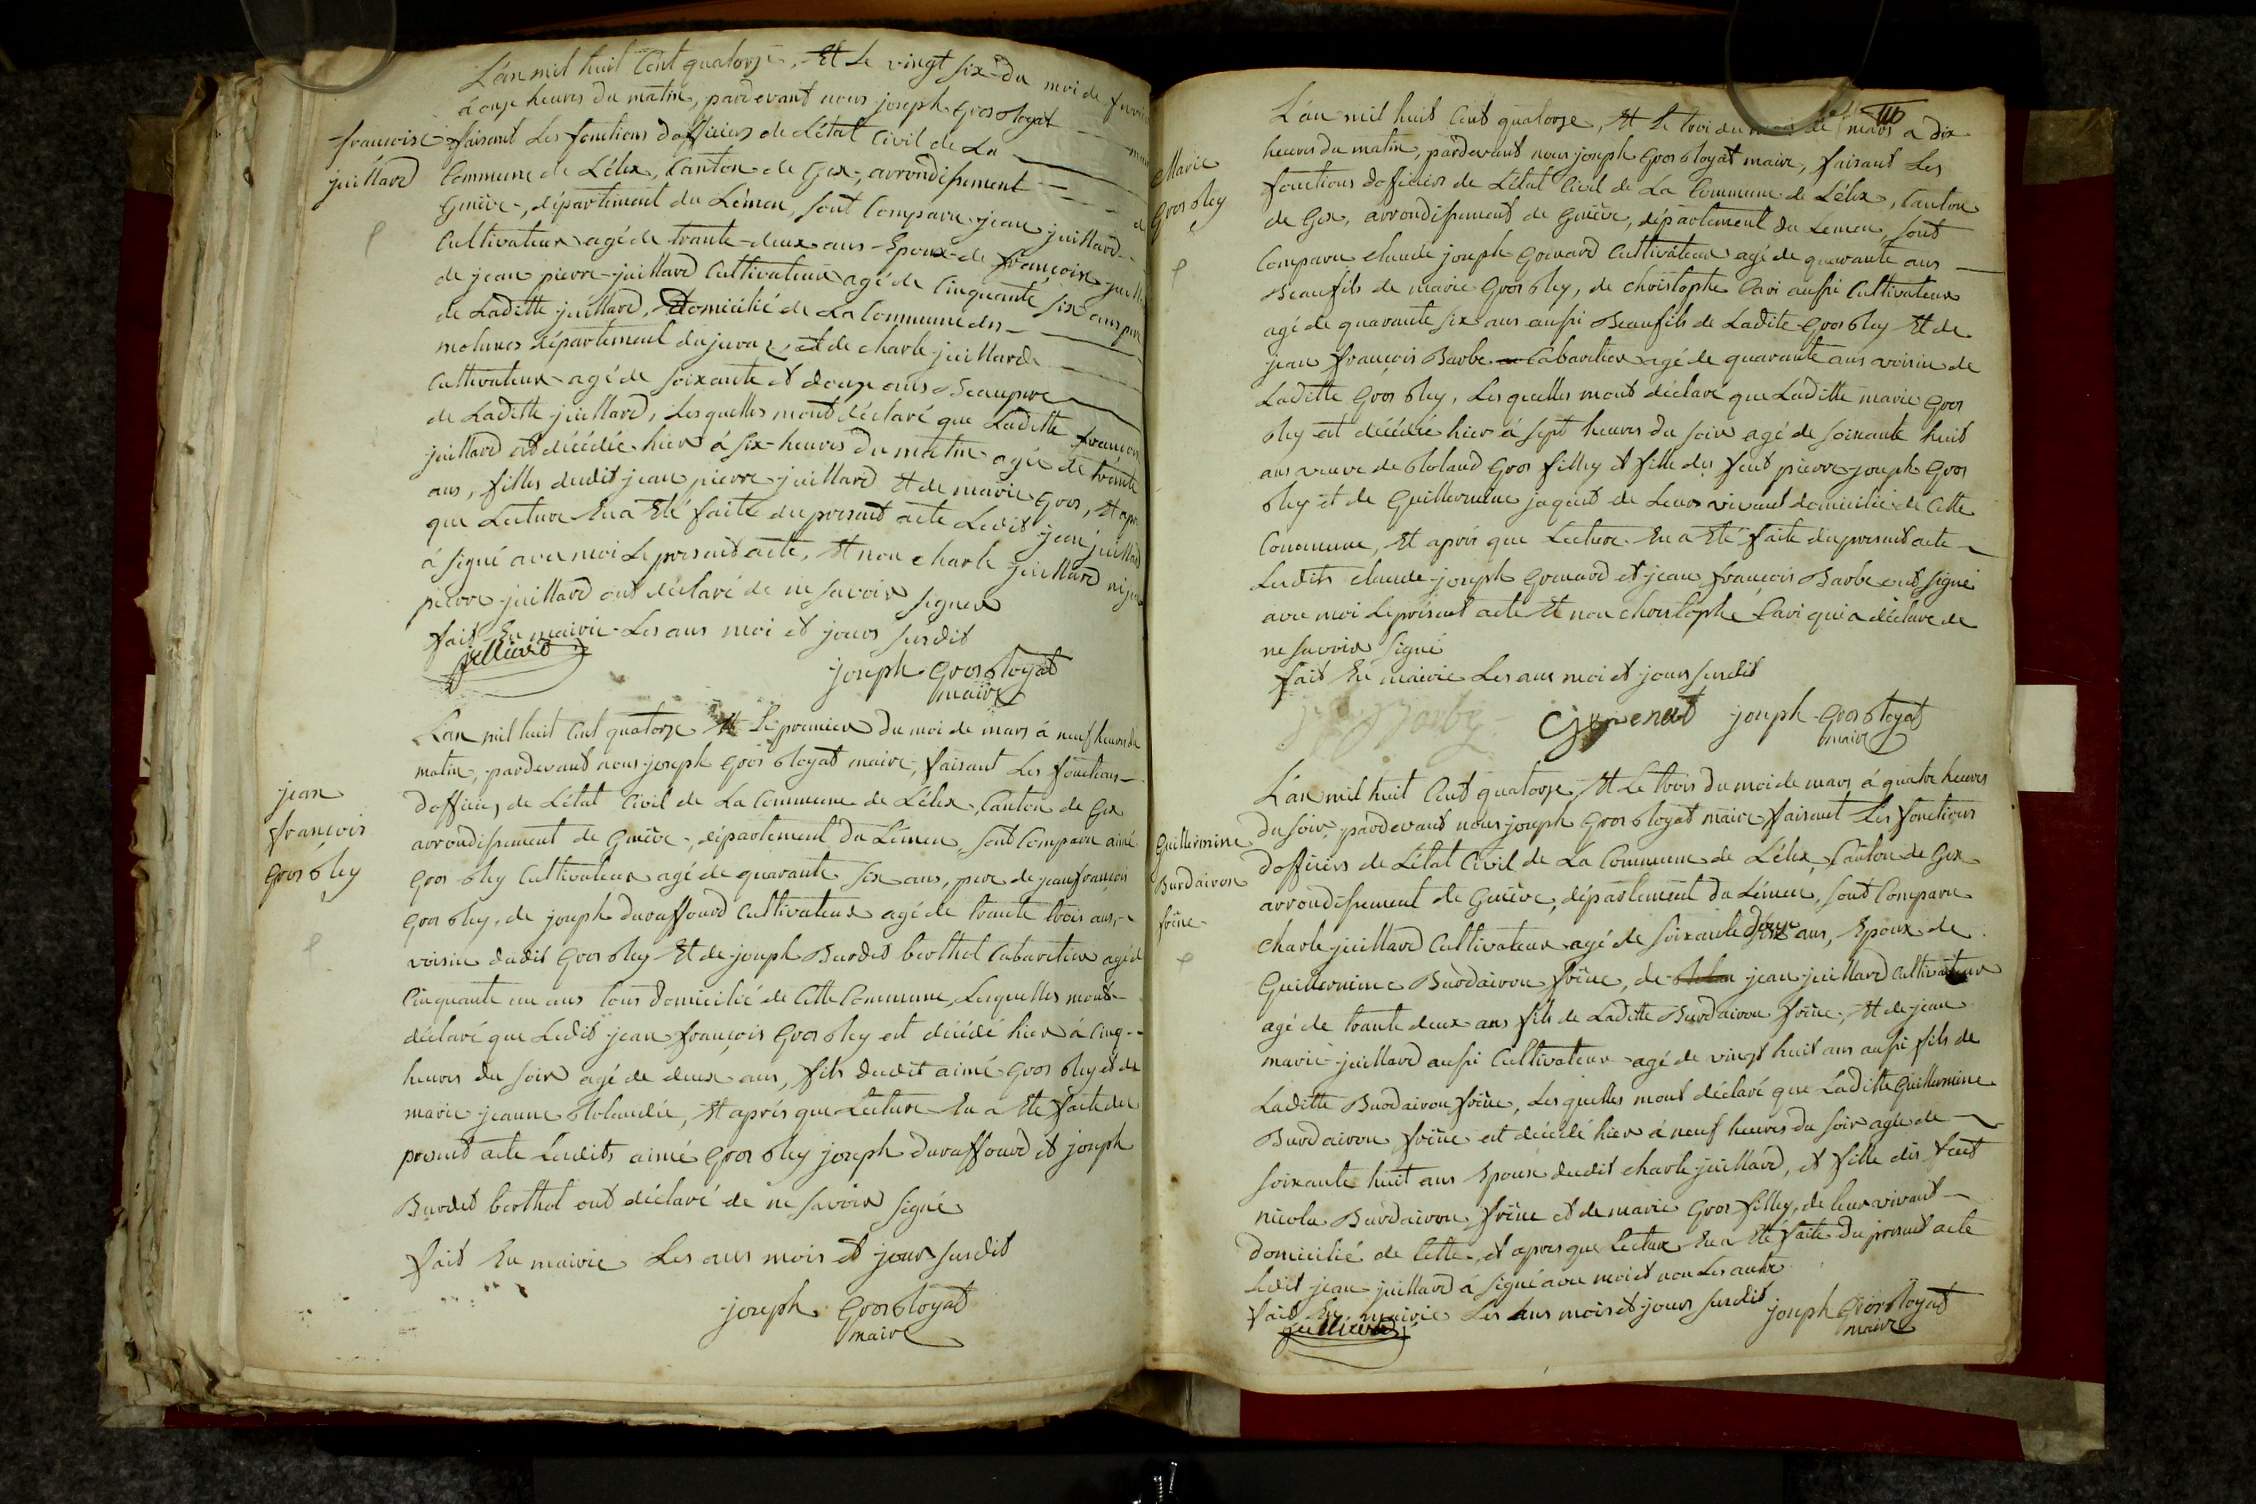 L'an mil huit Cent quatorze, Et Le vingt six du moi de fevrier
á onze heures du matin, pardevant nous joseph Gros btoyat
françoise
juillard
faisant Les fonctions d'officiers de L'état Civil de La
Commune de Lélex, Canton de Gex, arrondissement
Genève, département du Léman, sont Comparu jean juillard
Cultivateur agé de trante deux ans Epoux de françoise juill
de jean pierre juillard Cultivateur agé de Cinquante six ans per
de Laditte juillard, Domicilié de La Commune des
molunes département du jura, et de charle juillard
Cultivateur agé de soixante et douze ans Beaupere
de Laditte juillard, Lesquelles mont déclaré que Laditte françoi
juillard est décédée hier á six heures du matin agée de trante
ans, filles dudit jean pierre juillard Et de marie Gros, Et apr
que Lecture En a Eté faite du present acte Ledit jean juillard
á signé avec moi Le present acte, Et non charle juillard ni jean
pierre juillard ont déclaré de ne savoir signer
fait En mairie Les ans moi et jours susdit
juilliard
joseph Gros btoyat
maire
L'an mil huit Cent quatorze Et Le premier du moi de mars á neuf heures du
matin, pardevant nous joseph Gros btoyat maire, faisant Les fonctions
jean
françois
Gros bley
d'officiers de L'état Civil de La Commune de Lélex, Canton de Gex
arrondissement de Genève, département du Léman, sont Comparu aimé
Gros bley Cultivateur agé de quarante six ans, pere de jean françois
Gros bley, de joseph duraffourd Cultivateur agé de trante trois ans,
voisin dudit Gros bley Et de joseph Burdet berthet Cabaretier agé de
Cinquante un ans tous domicilié de Cette Commune, Lesquelles mont
déclaré que Ledit jean françois Gros bley est décédé hier á Cinq
heures du soir agé de deux ans, fils dudit aimé Gros bley et de
marie jeanne blolandée, Et aprés que Lecture En a Eté faite du
present acte Lesdits aimé Gros bley joseph duraffourd et joseph
Burdet berthet ont déclaré de ne savoir signé
fait En mairie Les ans mois et jours susdit
joseph Gros btoyat
maire
L'an mil huit Cent quatorze, Et Le troi du moi de mars a dix
heures du matin, pardevant nous joseph Gros btoyat maire, faisant Les
Marie
Gros bley
fonctions d'officiers de L'état Civil de La Commune de Lélex, Canton
de Gex, arrondissement de Genève, département du Leman, sont
Comparu claude joseph Grenard Cultivateur agé de quarante ans
Beaufils de marie Gros bley, de christophe Cavi aussi Cultivateur
agé de quarante six ans aussi Beaufils de Ladite Gros bley Et de
jean françois Barbe Cabaretier agé de quarante ans voisin de
Laditte Gros bley, Lesquelles mont déclaré que Laditte marie Gros
bley est décédée hier á sept heures du soir agé de soixante huit
ans veuve de Roland Gros filley et fille des feut pierre joseph Gros
bley et de Guillermine jaquet de Leurs vivant domicilié de Cette
Commune, Et aprés que Lecture En a Eté faite du present acte
Lesdits claude joseph Grenard et jean françois Barbe ont signé
avec moi Le présent acte Et non christophe Cavi qui a déclare de
ne savoir signé
fait En mairie Les ans moi et jours susdit
Barbe
Cjgrenard
joseph Gros btoyat
maire
L'an mil huit Cent quatorze, Et Le trois du moi de mars á quatre heures
du soir, pardevant nous joseph Gros btoyat maire faisant Les fonctions
Guillermine
Burdairon
frêne
d'officiers de L'état Civil de La Commune de Lélex, Canton de Gex
arrondissement de Genève, département du Léman, sont Comparu
charle juillard Cultivateur agé de soixante douze ans, Epoux de
Guillermine Burdairon frêne, de jean juillard Cultivateur
agé de trante deux ans fils de Laditte Burdairon frêne, Et de jean
marie juillard aussi Cultivateur agé de vingt huit ans aussi fils de
Laditte Burdairon frêne, Lesquelles mont déclaré que Laditte Guillermine
Burdairon frêne est décédé hier á neuf heures du soir agée de
soixante huit ans Epouse dudit charle juillard, et fille dés feut
nicola Burdairon frêne et de marie Gros filley, de leur vivant
domicilié de Cette, et apres que Lecture En a Eté faite du present acte
Ledit jean juillard á signé avec moi et non Les autre
fait En mairie Les ans mois et jours susdit
juilliard
joseph Gros btoyat
maire